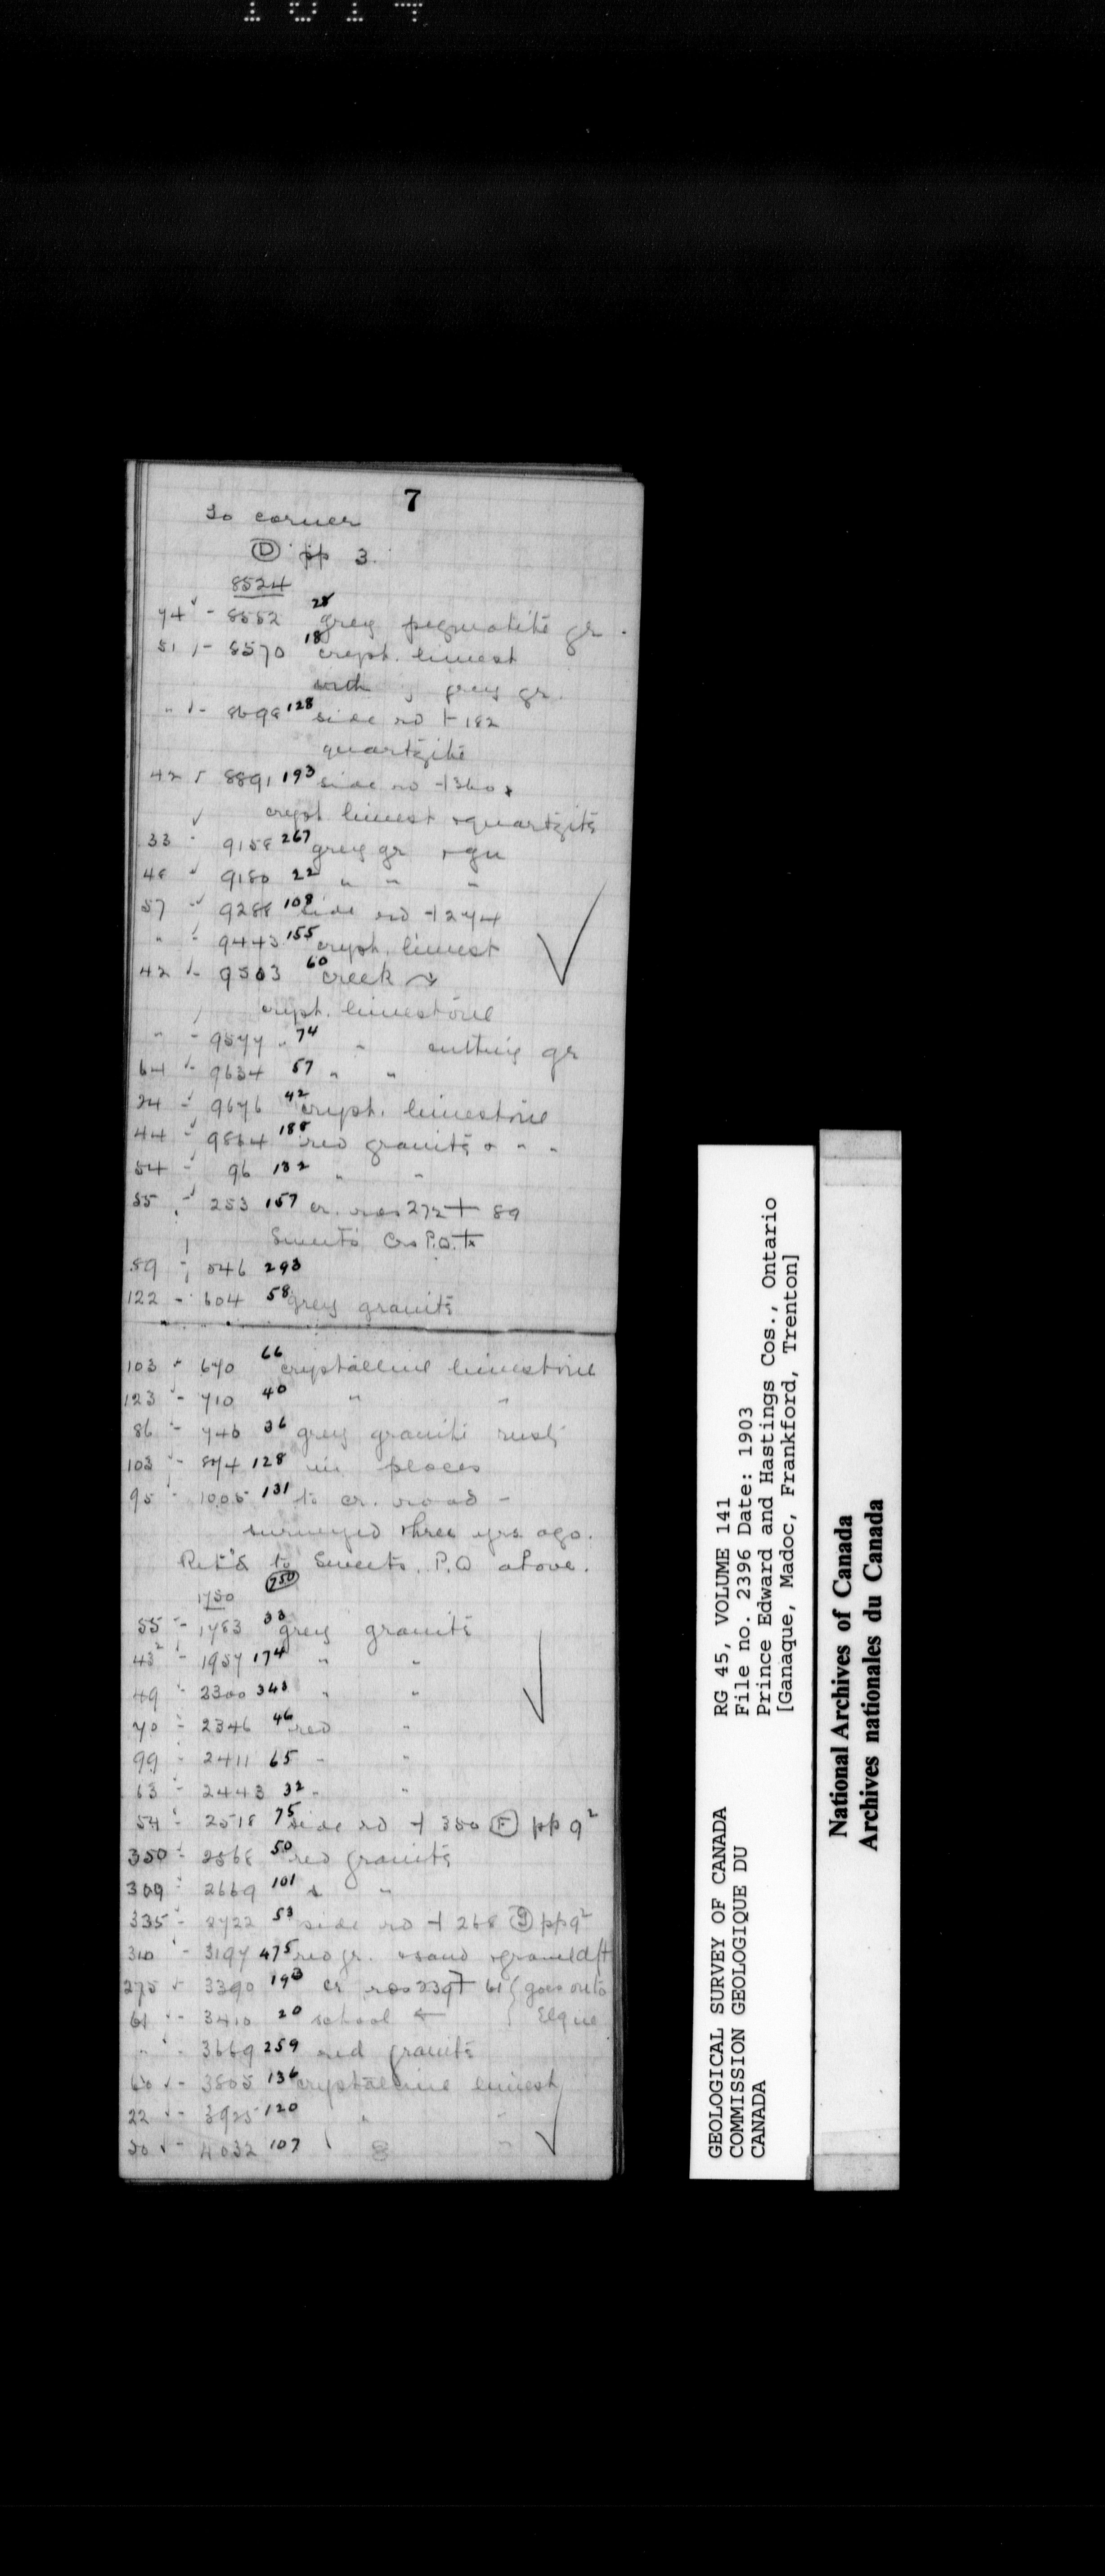 7
To corner
Ⓓ pp 3.
8524
74 - 8552 28 grey pegmatite gr.
51 - 8570 18 cryst. limest
with grey gr.
" - 8698 128 side rd ⊢ 182
quartzite
42 - 8891 193 side rd ⊣ 360
cryst limest + quartzite
33 - 9158 267 grey gr + gn
48 - 9180 22 " " "
57 - 9288 108 side rd ⊣ 274
" - 9443 155 cryst. limest
42 - 9503 60 creek
cryst. limestone
" - 9577 74 " " cutting gr
64 - 9634 57 " "
24 - 9676 42 cryst. limestone
44 - 9864 188 red granite + " "
54 - 96 132 " "
55 - 253 157 cr. roa 272 + 89
Sweets Crs P.O.
89 - 546 293
122 - 604 58 grey granite
103 - 670 66 crystalline limestone
123 - 710 40 " "
86 - 746 36 grey granite rusty
103 - 874 128 in places
95 - 1005 131 to cr. road -
surveyed three yrs. ago.
Ret'd to Sweets. P.O above.
1750 750
55 - 1783 33 grey granite
43² - 1957 174 " "
49 - 2300 343 " "
70 - 2346 46 red "
99 - 2411 65 " "
63 - 2443 32 " "
54 - 2518 75 side rd ⊣ 350 Ⓕ pp 9²
350 - 2568 50 red granite
309 - 2669 101 " "
335 - 2722 53 side rd ⊣ 268 ⓖ pp 9²
310 - 3197 475 red gr. + sand + gravel dft
275 - 3390 193 cr roa 239 61 (goes onto
61 - 3410 20 school ←
" - 3669 259 red granite
60 - 3805 136 crystalline limest
22 - 3925 120 " "
20 - 4032 107 "
GEOLOGICAL SURVEY OF CANADA
COMMISSION GEOLOGIQUE DU
CANADA
RG 45, VOLUME 141
File no. 2396 Date: 1903
Prince Edward and Hastings Cos., Ontario
[Ganaque, Madoc, Frankford, Trenton]
National Archives of Canada
Archives nationales du Canada